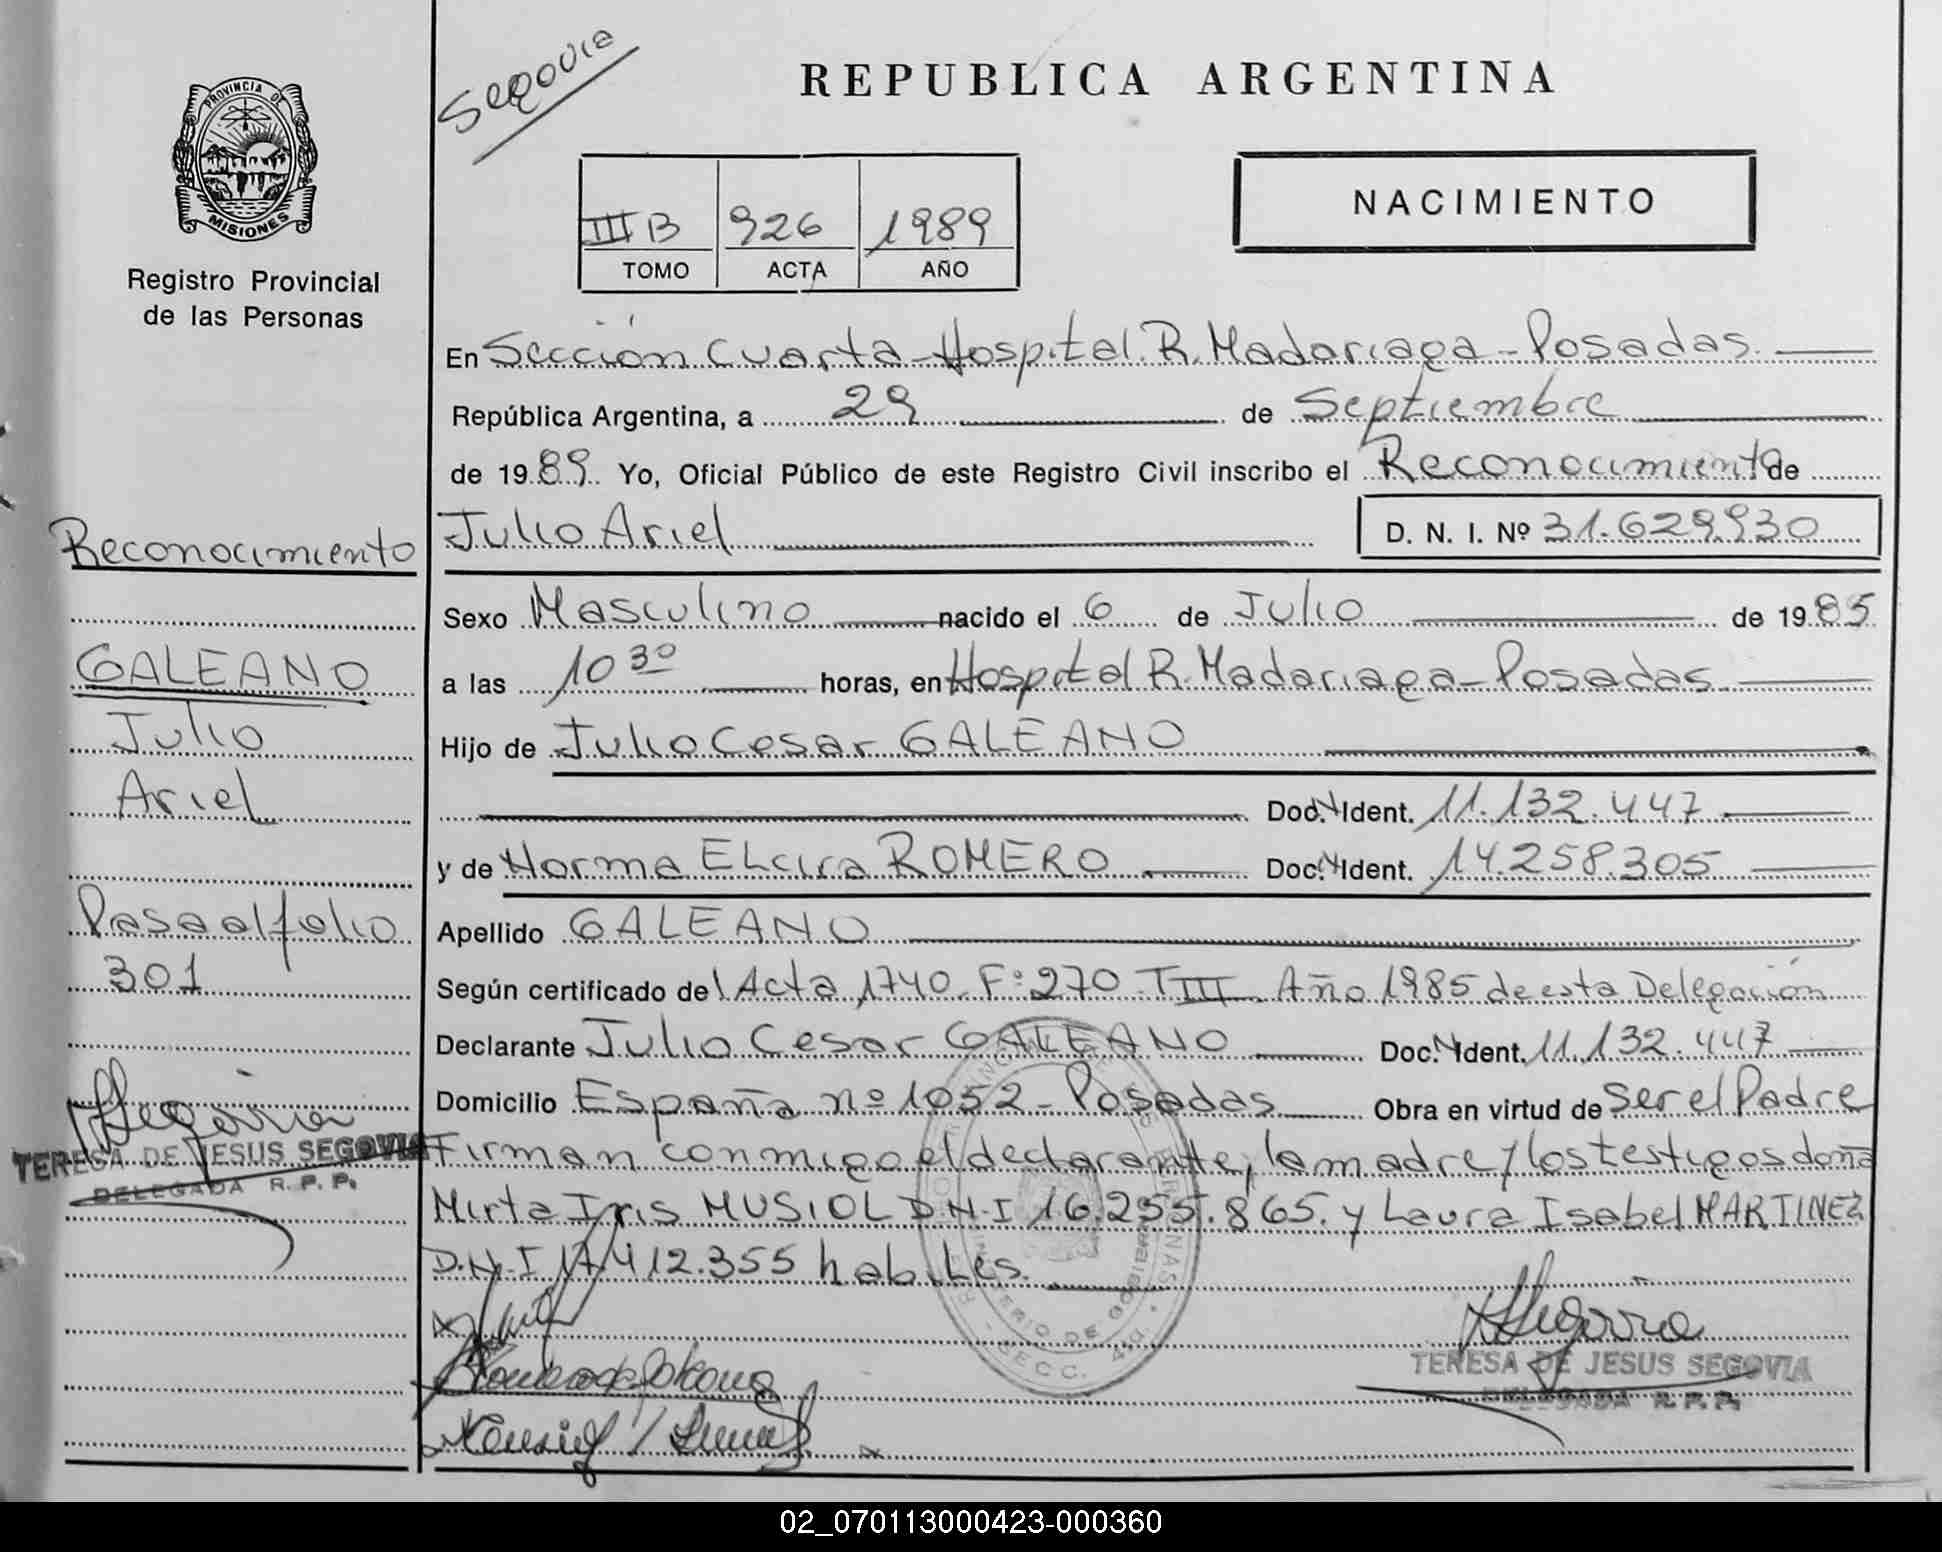 Segovia
REPUBLICA ARGENTINA
PROVINCIA DE
MISIONES
Registro Provincial
de las Personas
III B 926 1989
TOMO ACTA AÑO
NACIMIENTO
En Sección Cuarta - Hospital R. Madariaga - Posadas.
República Argentina, a 29 de Septiembre
de 1989. Yo, Oficial Público de este Registro Civil inscribo el Reconocimiento de
Julio Ariel D. N. I. Nº 31.629.930
Sexo Masculino nacido el 6 de Julio de 1985
a las 10 30 horas, en Hospital R. Madariaga - Posadas
Hijo de Julio Cesar GALEANO
Doc. N. Ident. 11.132.447
y de Norma Elcira ROMERO Doc. N. Ident. 14.258.305
Apellido GALEANO
Según certificado del Acta 1740. F: 270. T III Año 1985 de esta Delegación
Declarante Julio Cesar GALEANO Doc. N. Ident. 11.132.447
Domicilio España nº 1052 - Posadas Obra en virtud de Ser el Padre
Firman conmigo el declarante, la madre y los testigos doña
Mirta Iris MUSIOL D.N.I 16.255.865. y Laura Isabel MARTINEZ
D.N.I 17.412.355 hábiles.
TERESA DE JESUS SEGOVIA
DELEGADA R. P. P.
Reconocimiento
GALEANO
Julio
Ariel
Pasa al folio
301
Segovia
TERESA DE JESUS SEGOVIA
DELEGADA R. P. P.
02_070113000423-000360